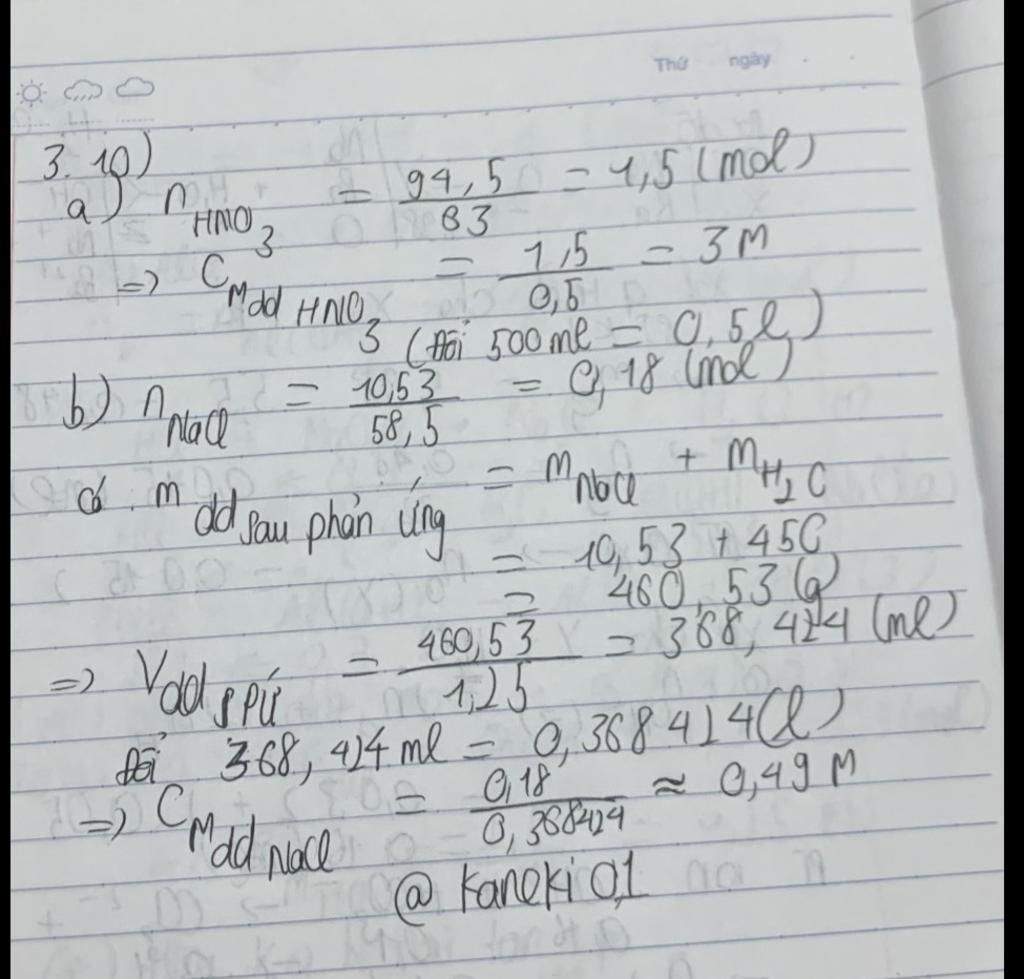 Thứ ngày
3.10)
a) n HNO3 = 94,5 / 63 = 1,5 (mol)
=> CM dd HNO3 = 1,5 / 0,5 = 3M
(Đổi 500ml = 0,5l)
b) nNaCl = 10,53 / 58,5 = 0,18 (mol)
Có : m dd sau phản ứng = mNaCl + mH2O
= 10,53 + 450
= 460,53 (g)
=> Vdd SPƯ = 460,53 / 1,25 = 368,424 (ml)
Đổi 368,424 ml = 0,368424 (l)
=> CM dd NaCl = 0,18 / 0,368424 ≈ 0,49 M
@ Kaneki 01